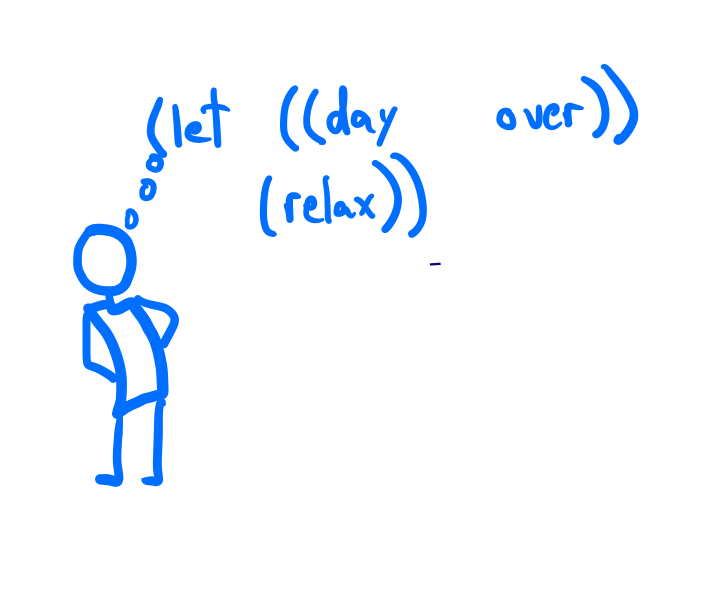 (let ((day over))
(relax))